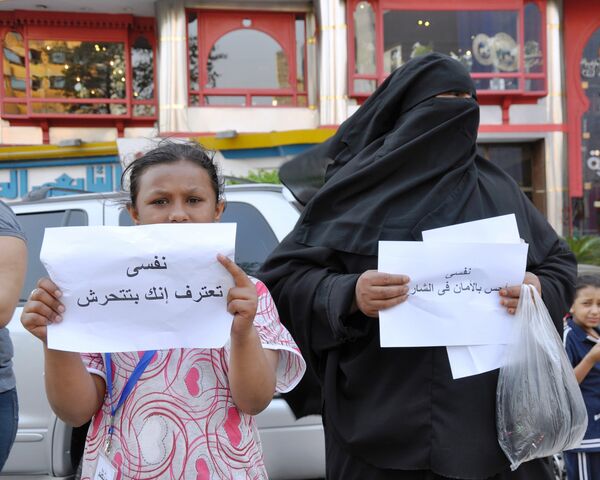 نفسى
تعترف إنك بتتحرش
نفسى
بالامان فى الشارع